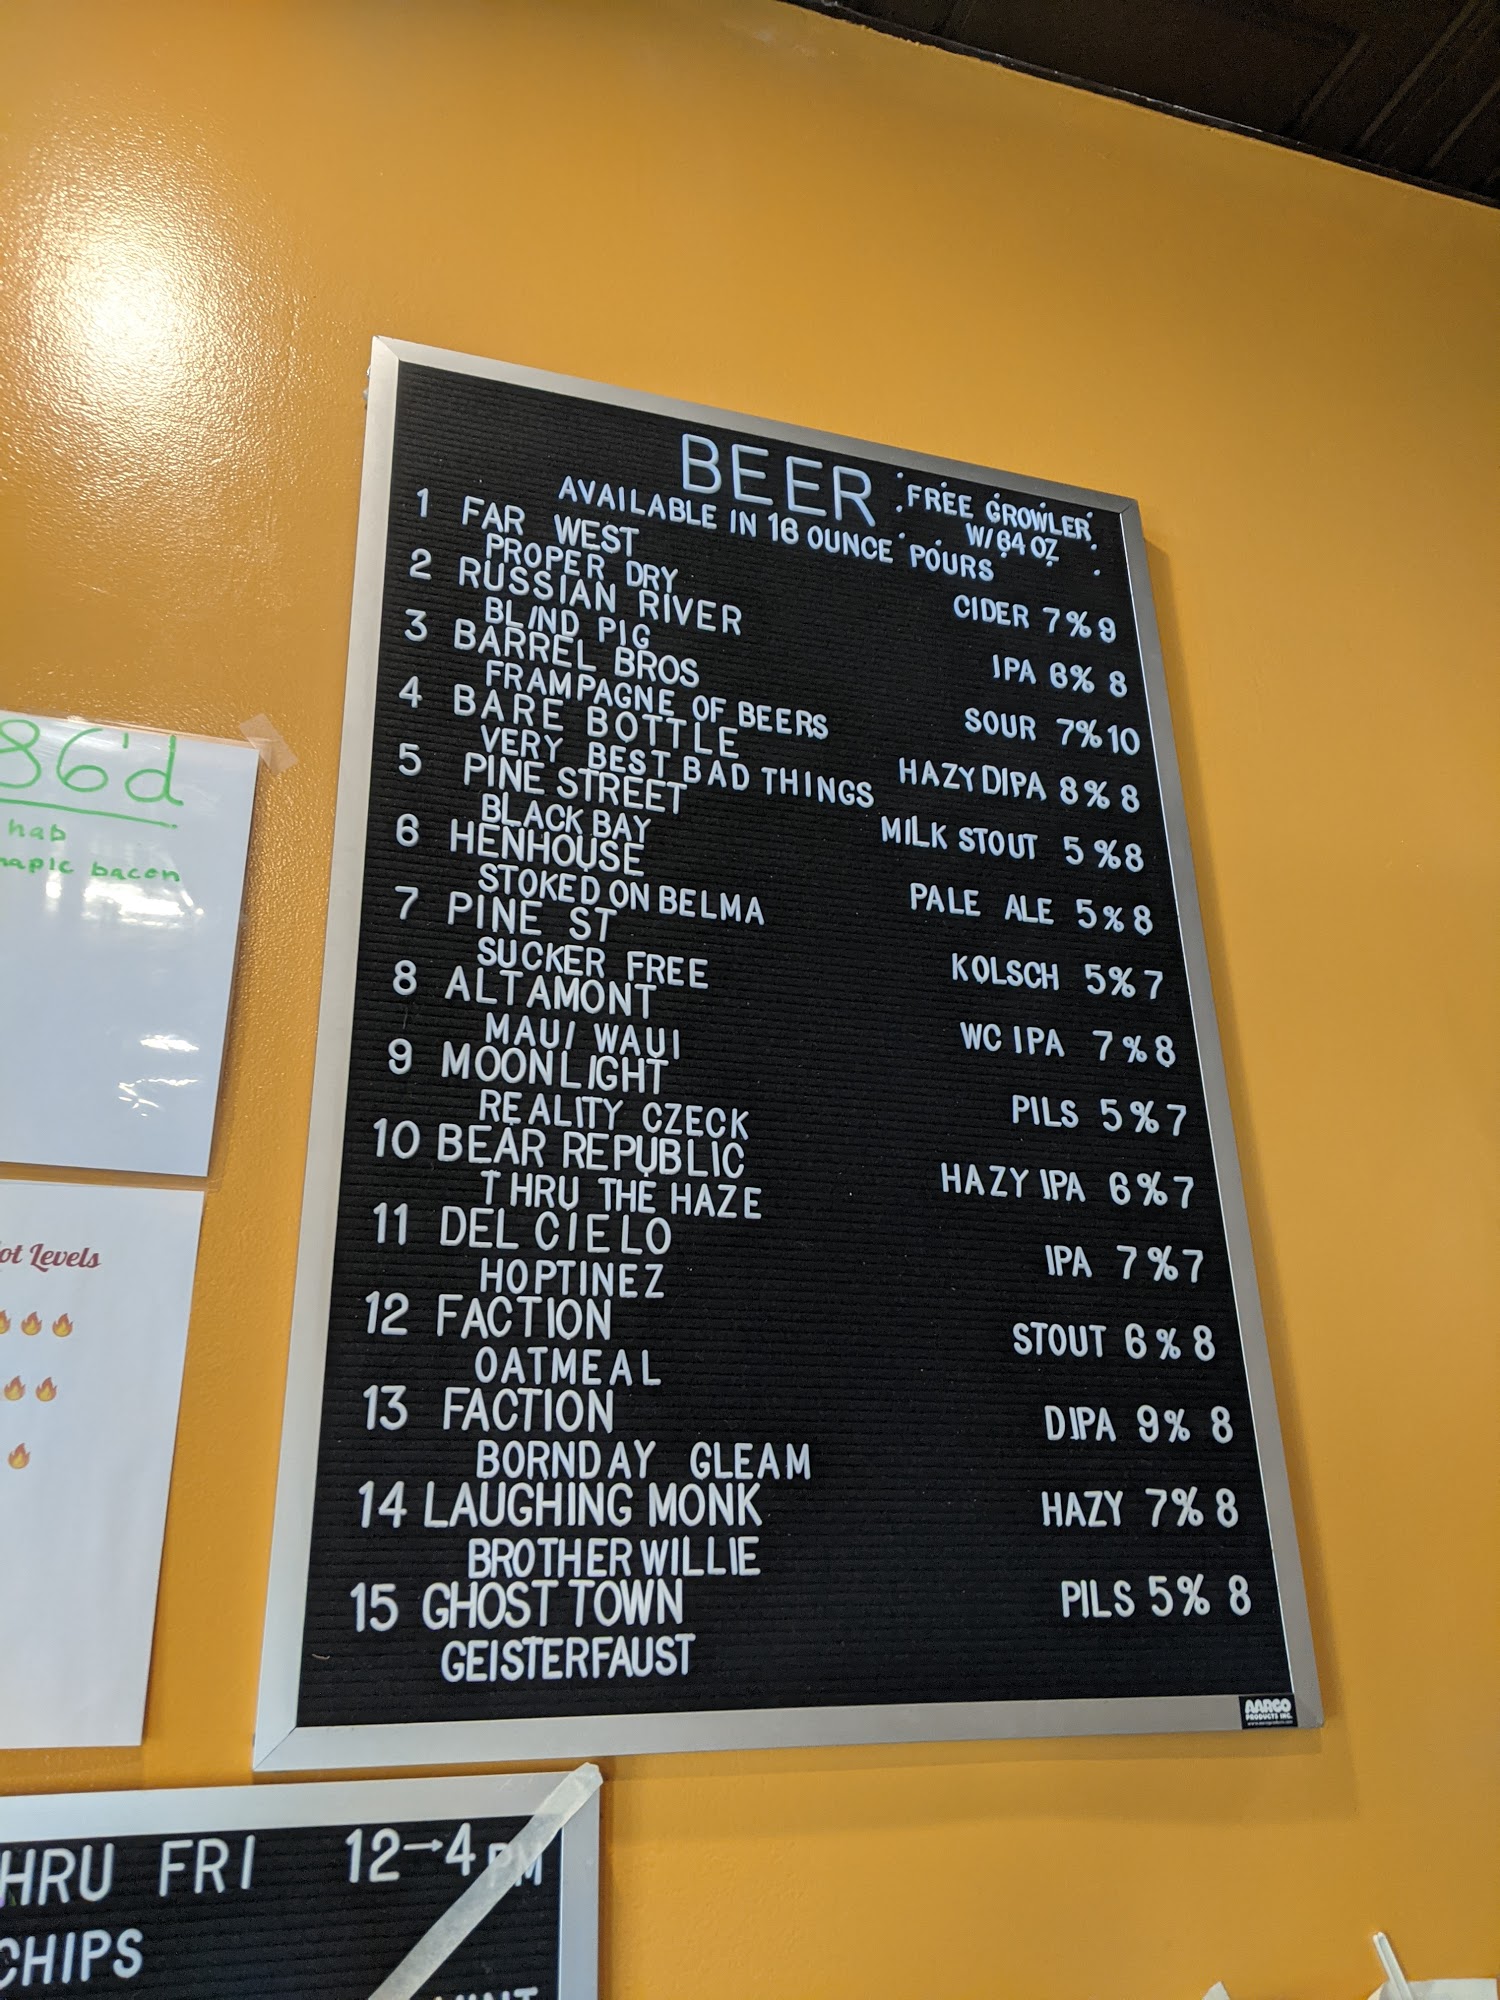 BEER FREE GROWLER
W/64 OZ
AVAILABLE IN 16 OUNCE POURS
1 FAR WEST CIDER 7% 9
PROPER DRY
2 RUSSIAN RIVER IPA 6% 8
BLIND PIG
3 BARREL BROS SOUR 7% 10
FRAMPAGNE OF BEERS
4 BARE BOTTLE HAZY DIPA 8% 8
VERY BEST BAD THINGS
5 PINE STREET MILK STOUT 5% 8
BLACK BAY
6 HENHOUSE PALE ALE 5% 8
STOKED ON BELMA
7 PINE ST KOLSCH 5% 7
SUCKER FREE
8 ALTAMONT WC IPA 7% 8
MAUI WAUI
9 MOONLIGHT PILS 5% 7
REALITY CZECK
10 BEAR REPUBLIC HAZY IPA 6% 7
THRU THE HAZE
11 DEL CIELO IPA 7% 7
HOPTINEZ
12 FACTION STOUT 6% 8
OATMEAL
13 FACTION DIPA 9% 8
BORNDAY GLEAM
14 LAUGHING MONK HAZY 7% 8
BROTHER WILLIE
15 GHOST TOWN PILS 5% 8
GEISTERFAUST
AARCO
PRODUCTS INC.
86'd
hab
bacon
Levels
HRU FRI 12→4 PM
CHIPS